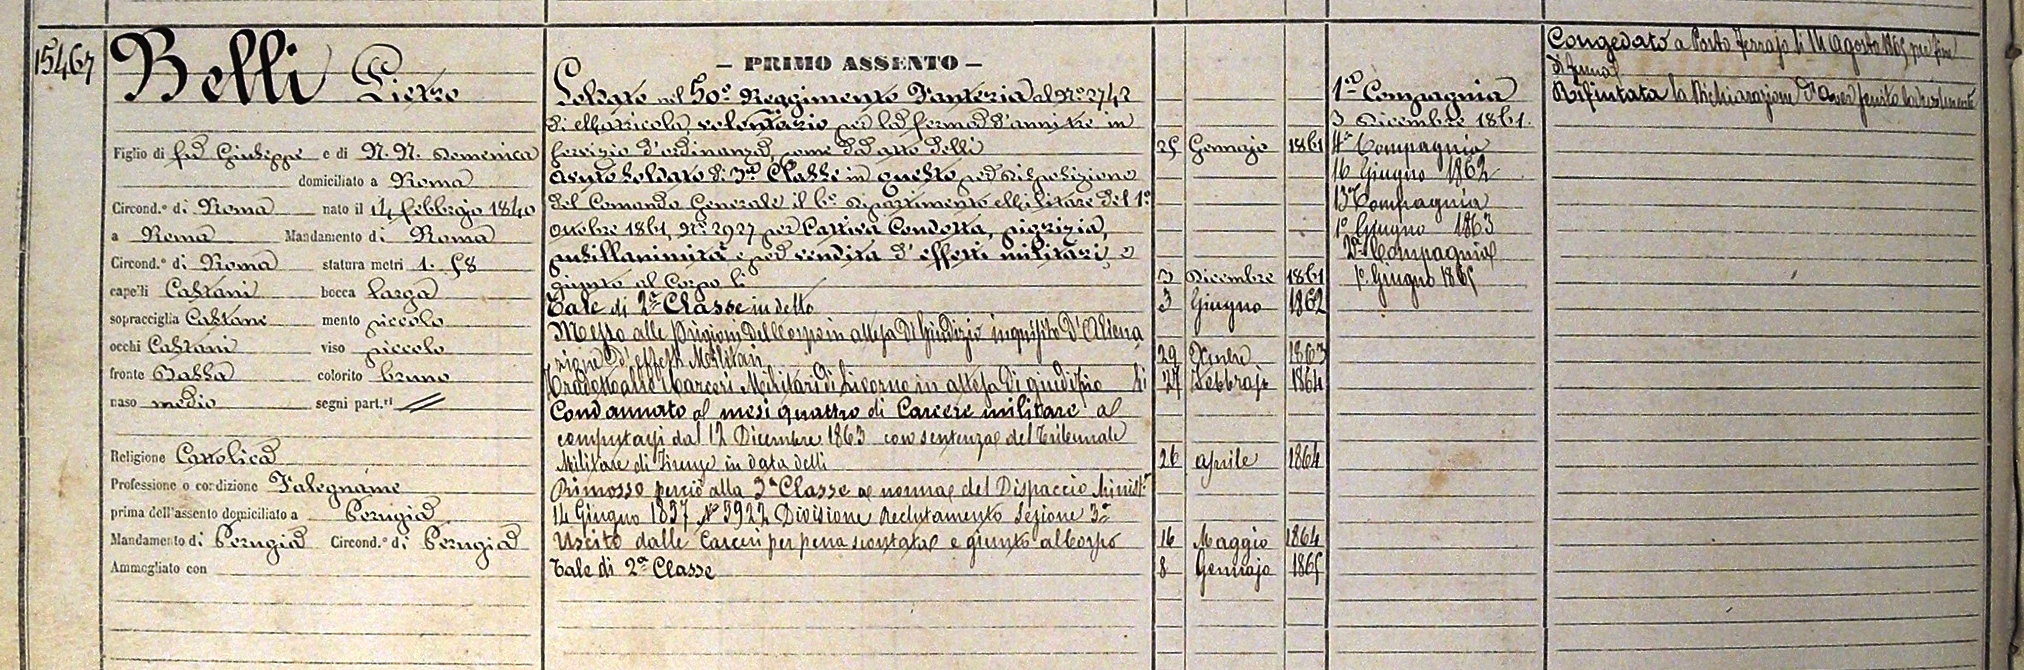 15467
Belli Pietro
Figlio di fu Giuseppe e di N. N. Domenica
domiciliato a Roma
Circond.º di Roma nato il 14 febbrajo 1840
a Roma Mandamento di Roma
Circond.º di Roma statura metri 1. 58
capelli Castani bocca larga
sopracciglia Castane mento piccolo
occhi Castani viso piccolo
fronte bassa colorito bruno
naso medio segni part.ri //
Religione Cattolica
Professione o condizione Falegname
prima dell'assento domiciliato a Perugia
Mandamento di Perugia Circond.º di Perugia
Ammogliato con
— PRIMO ASSENTO —
Soldato nel 50º Reggimento Fanteria al Nº 2742
di Matricola, volontario per la ferma d'anni tre in
servizio d'ordinanza, come da atto delli 25 Gennajo 1861
Avuto Soldato di 3a Classe in questo per disposizione
del Comando Generale il 6º Dipartimento Militare del 1º
Ottobre 1861, Nº 2927 per Cattiva Condotta, pigrizia,
pusillanimità e per vendita d'effetti militari, e
giunto al Corpo li 3 Dicembre 1861
Tale di 2a Classe in detto 3 Giugno 1862
Messo alle Prigioni del Corpo in attesa di Giudizio inquisito d'Aliena
zione d'effetti Militari 29 1863
Tradotto alle Carceri Militari di Livorno in attesa di giudizio li 27 Febbrajo 1864
Condannato a mesi quattro di Carcere militare a
computarsi dal 12 Dicembre 1863 con sentenza del Tribunale
Militare di Firenze in data delli 26 aprile 1864
Rimosso perciò alla 3a Classe a norma del Dispaccio Minist.e
14 Giugno 1857 Nº 3922 Divisione Reclutamento Sezione 3a
Uscito dalle Carceri per pena scontata e giunto al Corpo 16 Maggio 1864
Tale di 2a Classe 8 Gennajo 1865
1a Compagnia
3 Dicembre 1861.
4a Compagnia
16 Giugno 1862
13a Compagnia
1º Giugno 1863
2a Compagnia
1º Giugno 1865
Congedato a Porto Ferrajo li 14 Agosto 1865 per fine
di ferma
Rifiutata la Dichiarazione d'aver servito